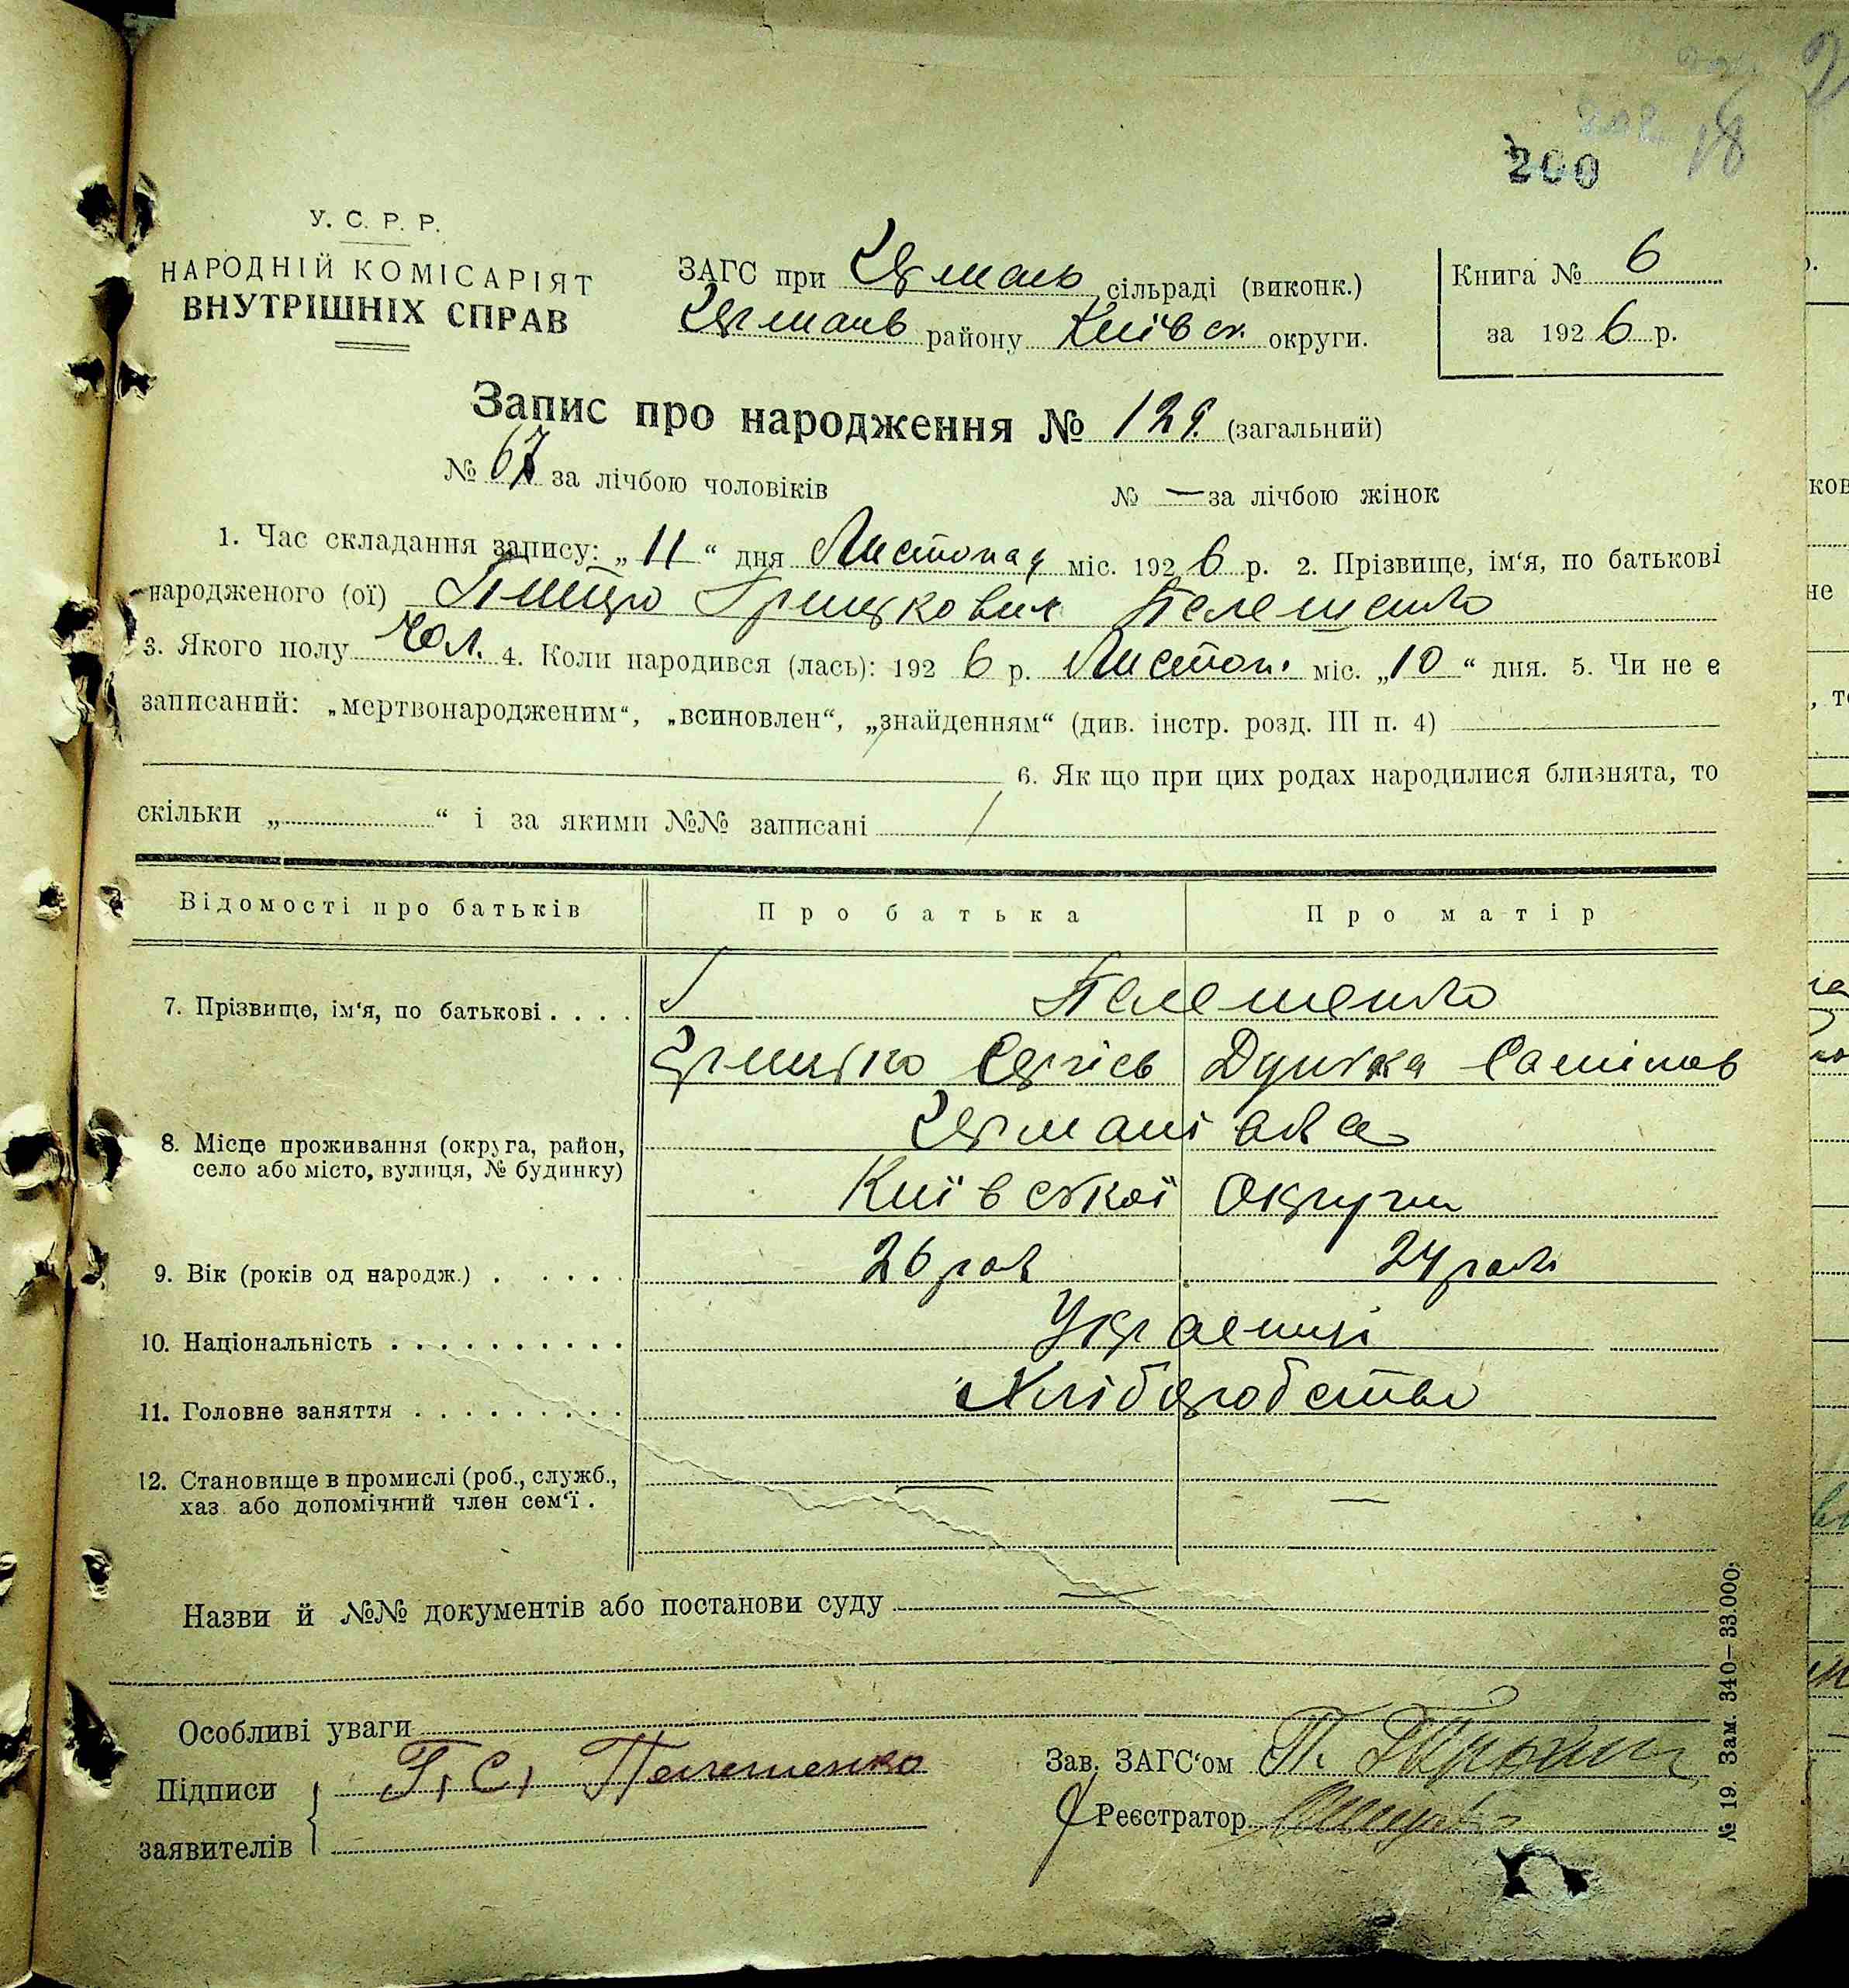 200
18
У. С. Р. Р.
НАРОДНІЙ КОМІСАРІЯТ
ВНУТРІШНІХ СПРАВ
ЗАГС при Герман сільраді (виконк.)
Германів району Київськ. округи.
Книга № 6
за 1926 р.
Запис про народження № 129. (загальний)
№ 67 за лічбою чоловіків № — за лічбою жінок
1. Час складання запису: „11“ дня Листопад міс. 1926 р. 2. Прізвище, ім‘я, по батькові
народженого (ої) Грицькович Пелешенко
3. Якого полу Чол. 4. Коли народився (лась): 1926 р. Листоп. міс. „10“ дня. 5. Чи не є
записаний: „мертвонародженим“, „всиновлен“, „знайденням“ (див. інстр. розд. III п. 4)
6. Як що при цих родах народилися близнята, то
скільки „ “ і за якими №№ записані
Відомості про батьків Про батька Про матір
7. Прізвище, ім‘я, по батькові . . . . Пелешенко
Грицько Сергієв Дунька
8. Місце проживання (округа, район, село або місто, вулиця, № будинку) Германівка
Київської Округи
9. Вік (років од народж.) . . . . . 26 рок 24 рок
10. Національність . . . . . . . . . . Українці
11. Головне заняття . . . . . . . . . Хліборобство
12. Становище в промислі (роб., служб.,
хаз. або допомічний член сем‘ї . — —
Назви й №№ документів або постанови суду —
Особливі уваги
Підписи
заявителів
Г. С. Пелешенко
Зав. ЗАГС‘ом П.
Реєстратор
№ 19. Зам. 340—33.000.